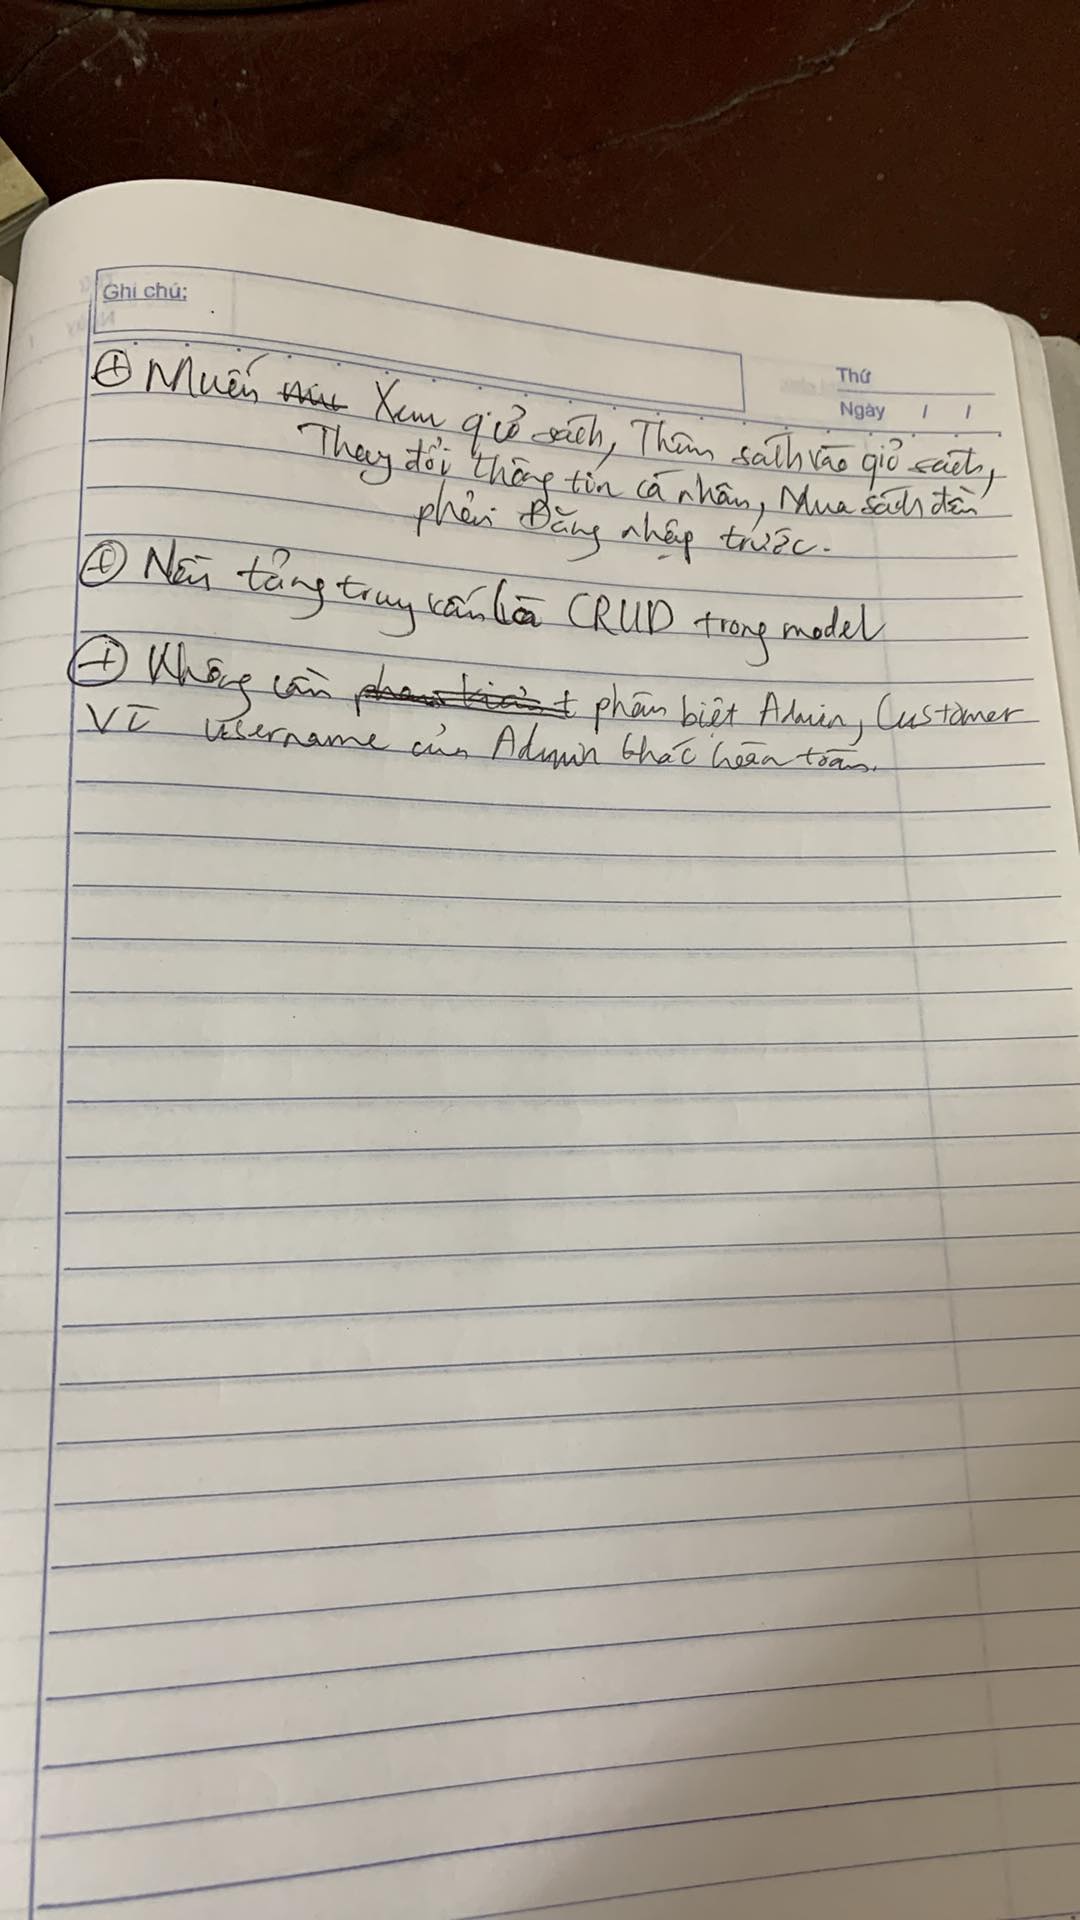 Ghi chú:
Thứ
Ngày / /
⊕ Muốn Xem giỏ sách, Thêm sách vào giỏ sách,
Thay đổi thông tin cá nhân, Mua sách đều
phải Đăng nhập trước.
⊕ Nền tảng truy vấn là CRUD trong model
⊕ Không cần phân biệt Admin, Customer
Vì username của Admin khác hoàn toàn.